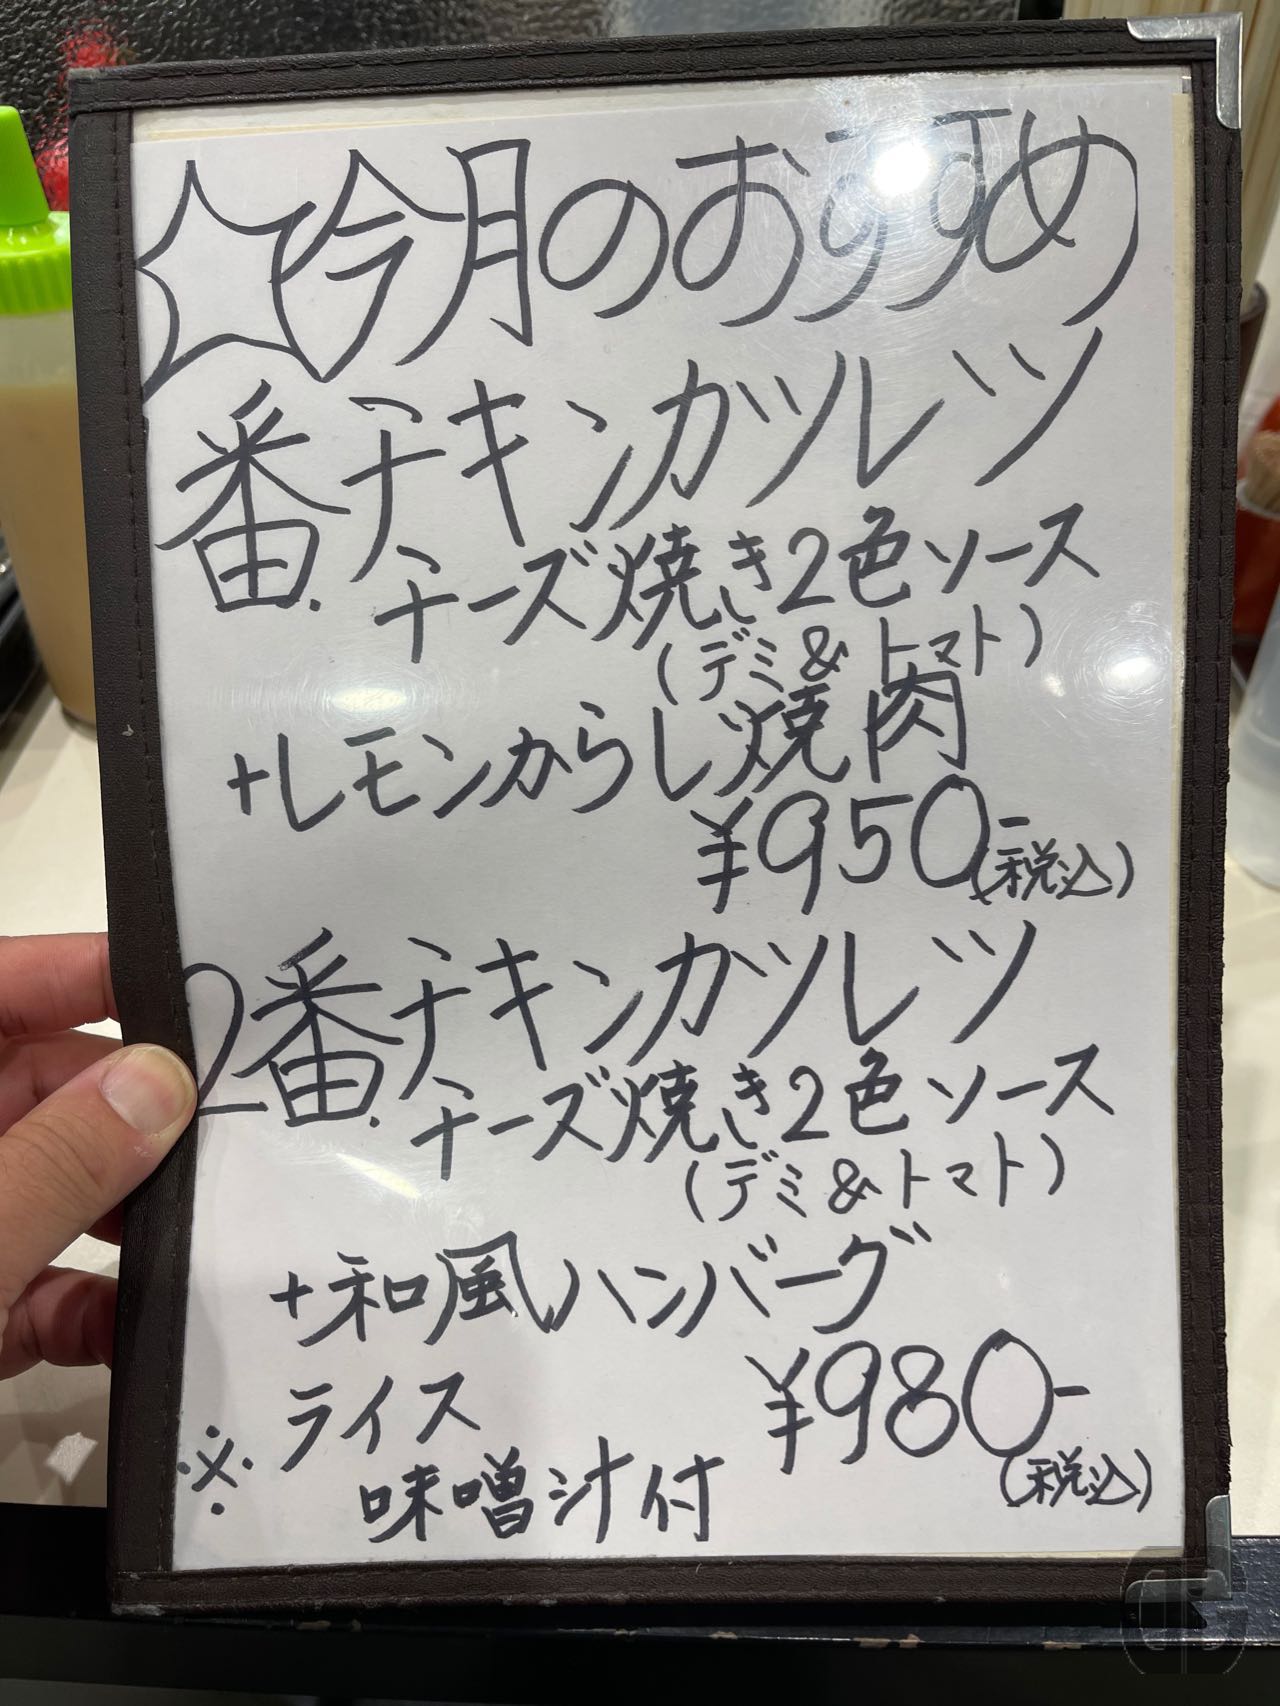 ☆今月のおすすめ
番.チキンカツレツ
チーズ焼き2色ソース
(デミ&トマト)
+レモンからし焼肉
¥950-(税込)
2番.チキンカツレツ
チーズ焼き2色ソース
(デミ&トマト)
+和風ハンバーグ
¥980-
(税込)
※ライス
味噌汁付